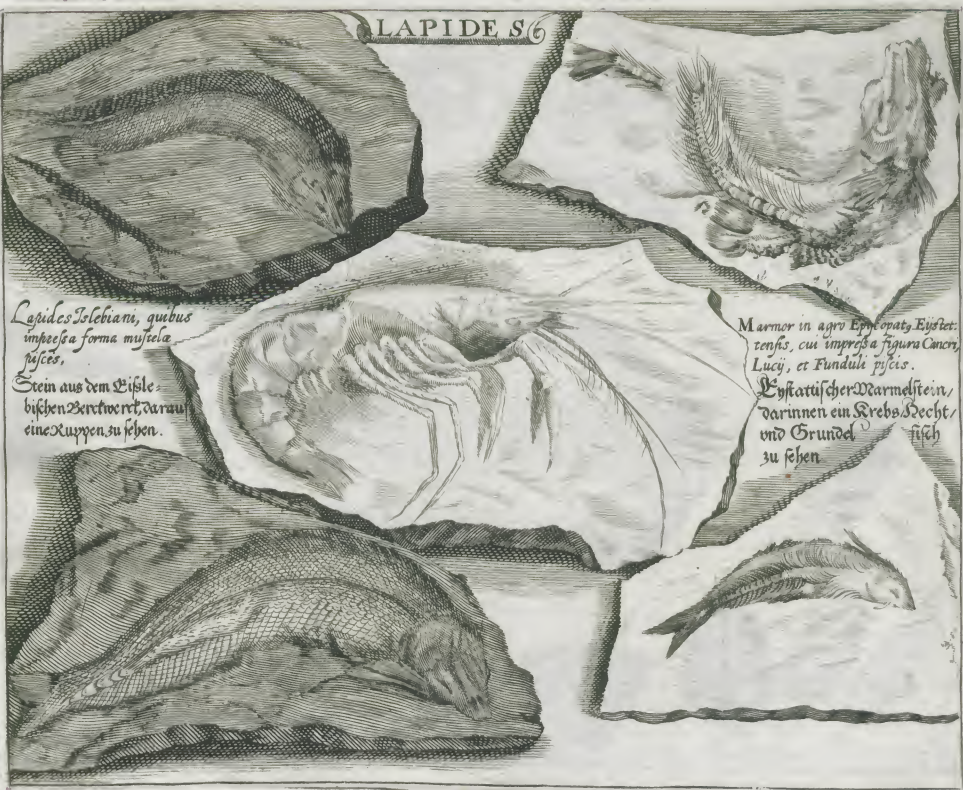 LAPIDES
Lapides Islebiani, quibus
impreſsa forma muſtelæ
piſces,
Stein aus dem Eißle-
biſchen Berckwerct, daraus
eine Ruppen zu ſehen.
Marmor in agro Epiſcopatꝰ Eyſtet:
tenſis, cui impreſsa figura Cancri,
Lucij, et Funduli piſcis.
Eyſtattiſcher Marmelſtein/
darinnen ein Krebs/Hecht/
vnd Grundel fiſch
zu ſehen